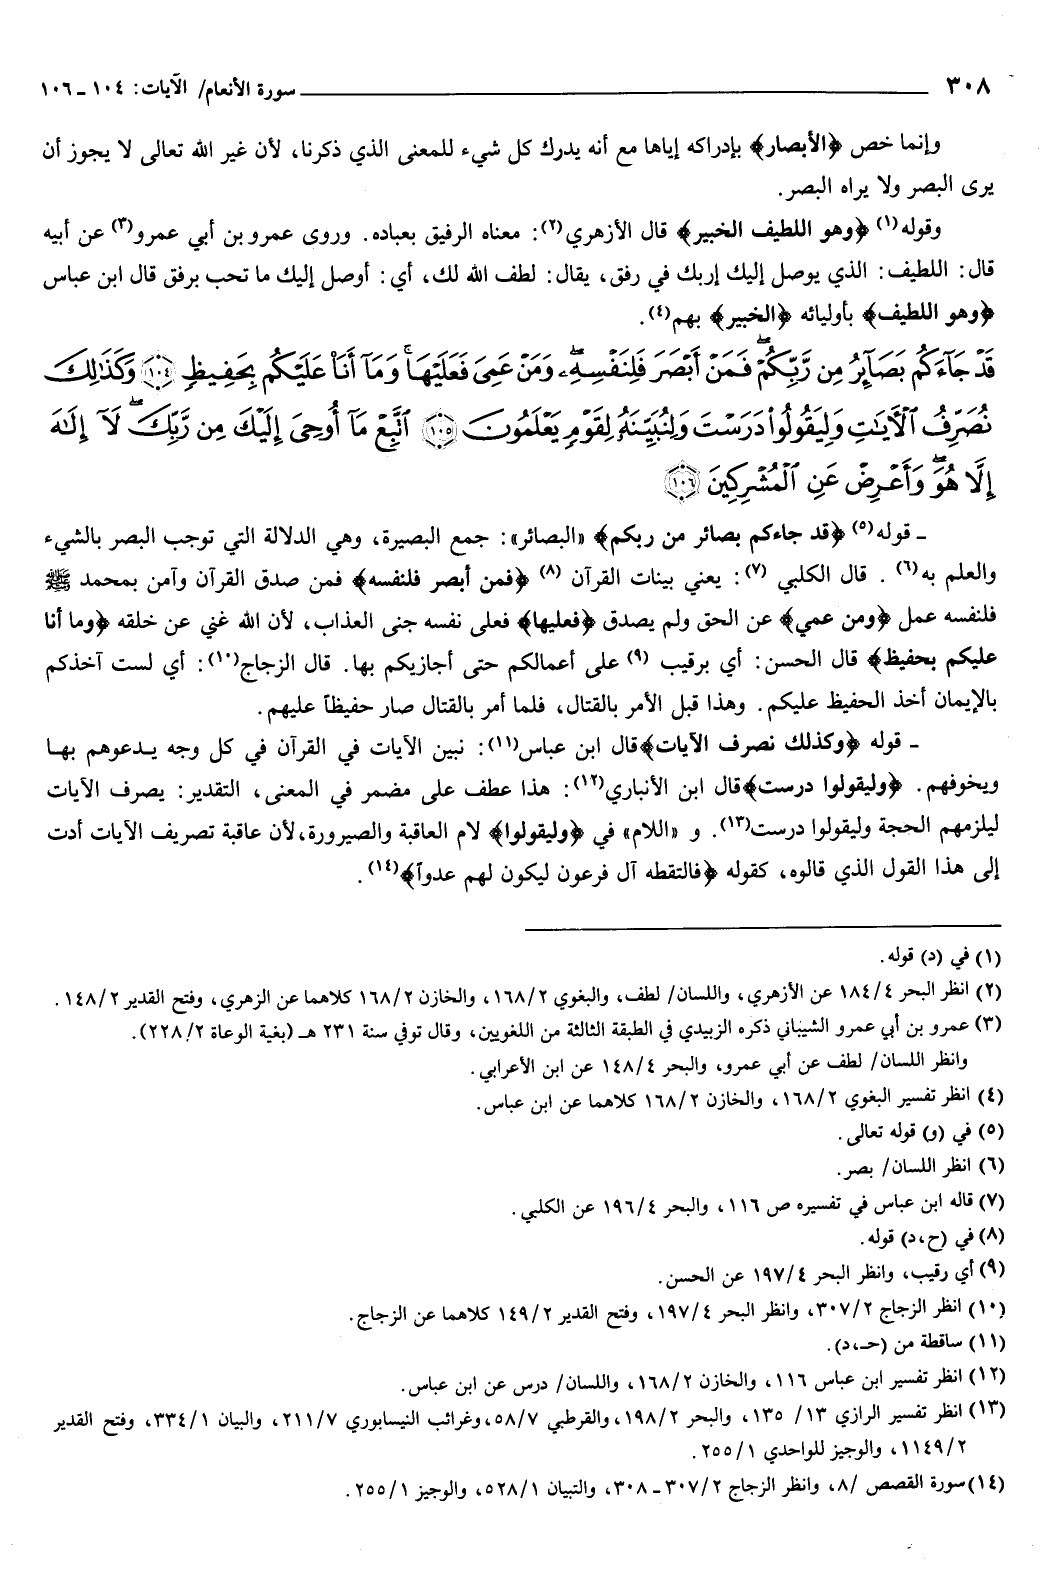 ٣٠٨ ــــــ سورة الأنعام/ الآيات: ١٠٤ ـ ١٠٦
وإنما خص ﴿الأبصار﴾ بإدراكه إياها مع أنه يدرك كل شيء للمعنى الذي ذكرنا، لأن غير الله تعالى لا يجوز أن
يرى البصر ولا يراه البصر.
وقوله(١) ﴿وهو اللطيف الخبير﴾ قال الأزهري(٢): معناه الرفيق بعباده. وروى عمرو بن أبي عمرو(٣) عن أبيه
قال: اللطيف: الذي يوصل إليك إربك في رفق، يقال: لطف الله لك، أي: أوصل إليك ما تحب برفق قال ابن عباس
﴿وهو اللطيف﴾ بأوليائه ﴿الخبير﴾ بهم(٤).
قَدْ جَآءَكُم بَصَآئِرُ مِن رَّبِّكُمْ ۖ فَمَنْ أَبْصَرَ فَلِنَفْسِهِۦ ۖ وَمَنْ عَمِىَ فَعَلَيْهَا ۚ وَمَآ أَنَا۠ عَلَيْكُم بِحَفِيظٍ ١٠٤ وَكَذَٰلِكَ
نُصَرِّفُ ٱلْـَٔايَٰتِ وَلِيَقُولُوا۟ دَرَسْتَ وَلِنُبَيِّنَهُۥ لِقَوْمٍ يَعْلَمُونَ ١٠٥ ٱتَّبِعْ مَآ أُوحِىَ إِلَيْكَ مِن رَّبِّكَ ۖ لَآ إِلَٰهَ
إِلَّا هُوَ ۖ وَأَعْرِضْ عَنِ ٱلْمُشْرِكِينَ ١٠٦
ـ قوله(٥) ﴿قد جاءكم بصائر من ربكم﴾ «البصائر»: جمع البصيرة، وهي الدلالة التي توجب البصر بالشيء
والعلم به(٦) . قال الكلبي (٧): يعني بينات القرآن (٨) ﴿فمن أبصر فلنفسه﴾ فمن صدق القرآن وآمن بمحمد ﷺ
فلنفسه عمل ﴿ومن عمي﴾ عن الحق ولم يصدق ﴿فعليها﴾ فعلى نفسه جنى العذاب، لأن الله غني عن خلقه ﴿وما أنا
عليكم بحفيظ﴾ قال الحسن: أي برقيب (٩) على أعمالكم حتى أجازيكم بها. قال الزجاج(١٠): أي لست آخذكم
بالإيمان أخذ الحفيظ عليكم. وهذا قبل الأمر بالقتال، فلما أمر بالقتال صار حفيظاً عليهم.
ـ قوله ﴿وكذلك نصرف الآيات﴾قال ابن عباس(١١): نبين الآيات في القرآن في كل وجه يـدعوهم بهـا
ويخوفهم. ﴿وليقولوا درست﴾قال ابن الأنباري(١٢): هذا عطف على مضمر في المعنى، التقدير: يصرف الآيات
ليلزمهم الحجة وليقولوا درست(١٣). و «اللام» في ﴿وليقولوا﴾ لام العاقبة والصيرورة،لأن عاقبة تصريف الآيات أدت
إلى هذا القول الذي قالوه، كقوله ﴿فالتقطه آل فرعون ليكون لهم عدواً﴾(١٤).
(١) في (د) قوله.
(٢) انظر البحر ٤/ ١٨٤ عن الأزهري، واللسان/ لطف، والبغوي ٢/ ١٦٨، والخازن ٢/ ١٦٨ كلاهما عن الزهري، وفتح القدير ٢/ ١٤٨.
(٣) عمرو بن أبي عمرو الشيباني ذكره الزبيدي في الطبقة الثالثة من اللغويين، وقال توفي سنة ٢٣١ هـ (بغية الوعاة ٢/ ٢٢٨).
وانظر اللسان/ لطف عن أبي عمرو، والبحر ٤/ ١٤٨ عن ابن الأعرابي.
(٤) انظر تفسير البغوي ٢/ ١٦٨، والخازن ٢/ ١٦٨ كلاهما عن ابن عباس.
(٥) في (و) قوله تعالى.
(٦) انظر اللسان/ بصر.
(٧) قاله ابن عباس في تفسيره ص ١١٦، والبحر ٤/ ١٩٦ عن الكلبي.
(٨) في (ح،د) قوله.
(٩) أي رقيب، وانظر البحر ٤/ ١٩٧ عن الحسن.
(١٠) انظر الزجاج ٢/ ٣٠٧، وانظر البحر ٤/ ١٩٧، وفتح القدير ٢/ ١٤٩ كلاهما عن الزجاج.
(١١) ساقطة من (حـ،د).
(١٢) انظر تفسير ابن عباس ١١٦، والخازن ٢/ ١٦٨، واللسان/ درس عن ابن عباس.
(١٣) انظر تفسير الرازي ١٣/ ١٣٥، والبحر ٢/ ١٩٨،والقرطبي ٧/ ٥٨،وغرائب النيسابوري ٧/ ٢١١، والبيان ١/ ٣٣٤، وفتح القدير
٢/ ١١٤٩، والوجيز للواحدي ١/ ٢٥٥.
(١٤)سورة القصص /٨، وانظر الزجاج ٢/ ٣٠٧ ـ ٣٠٨، والتبيان ١/ ٥٢٨، والوجيز ١/ ٢٥٥.